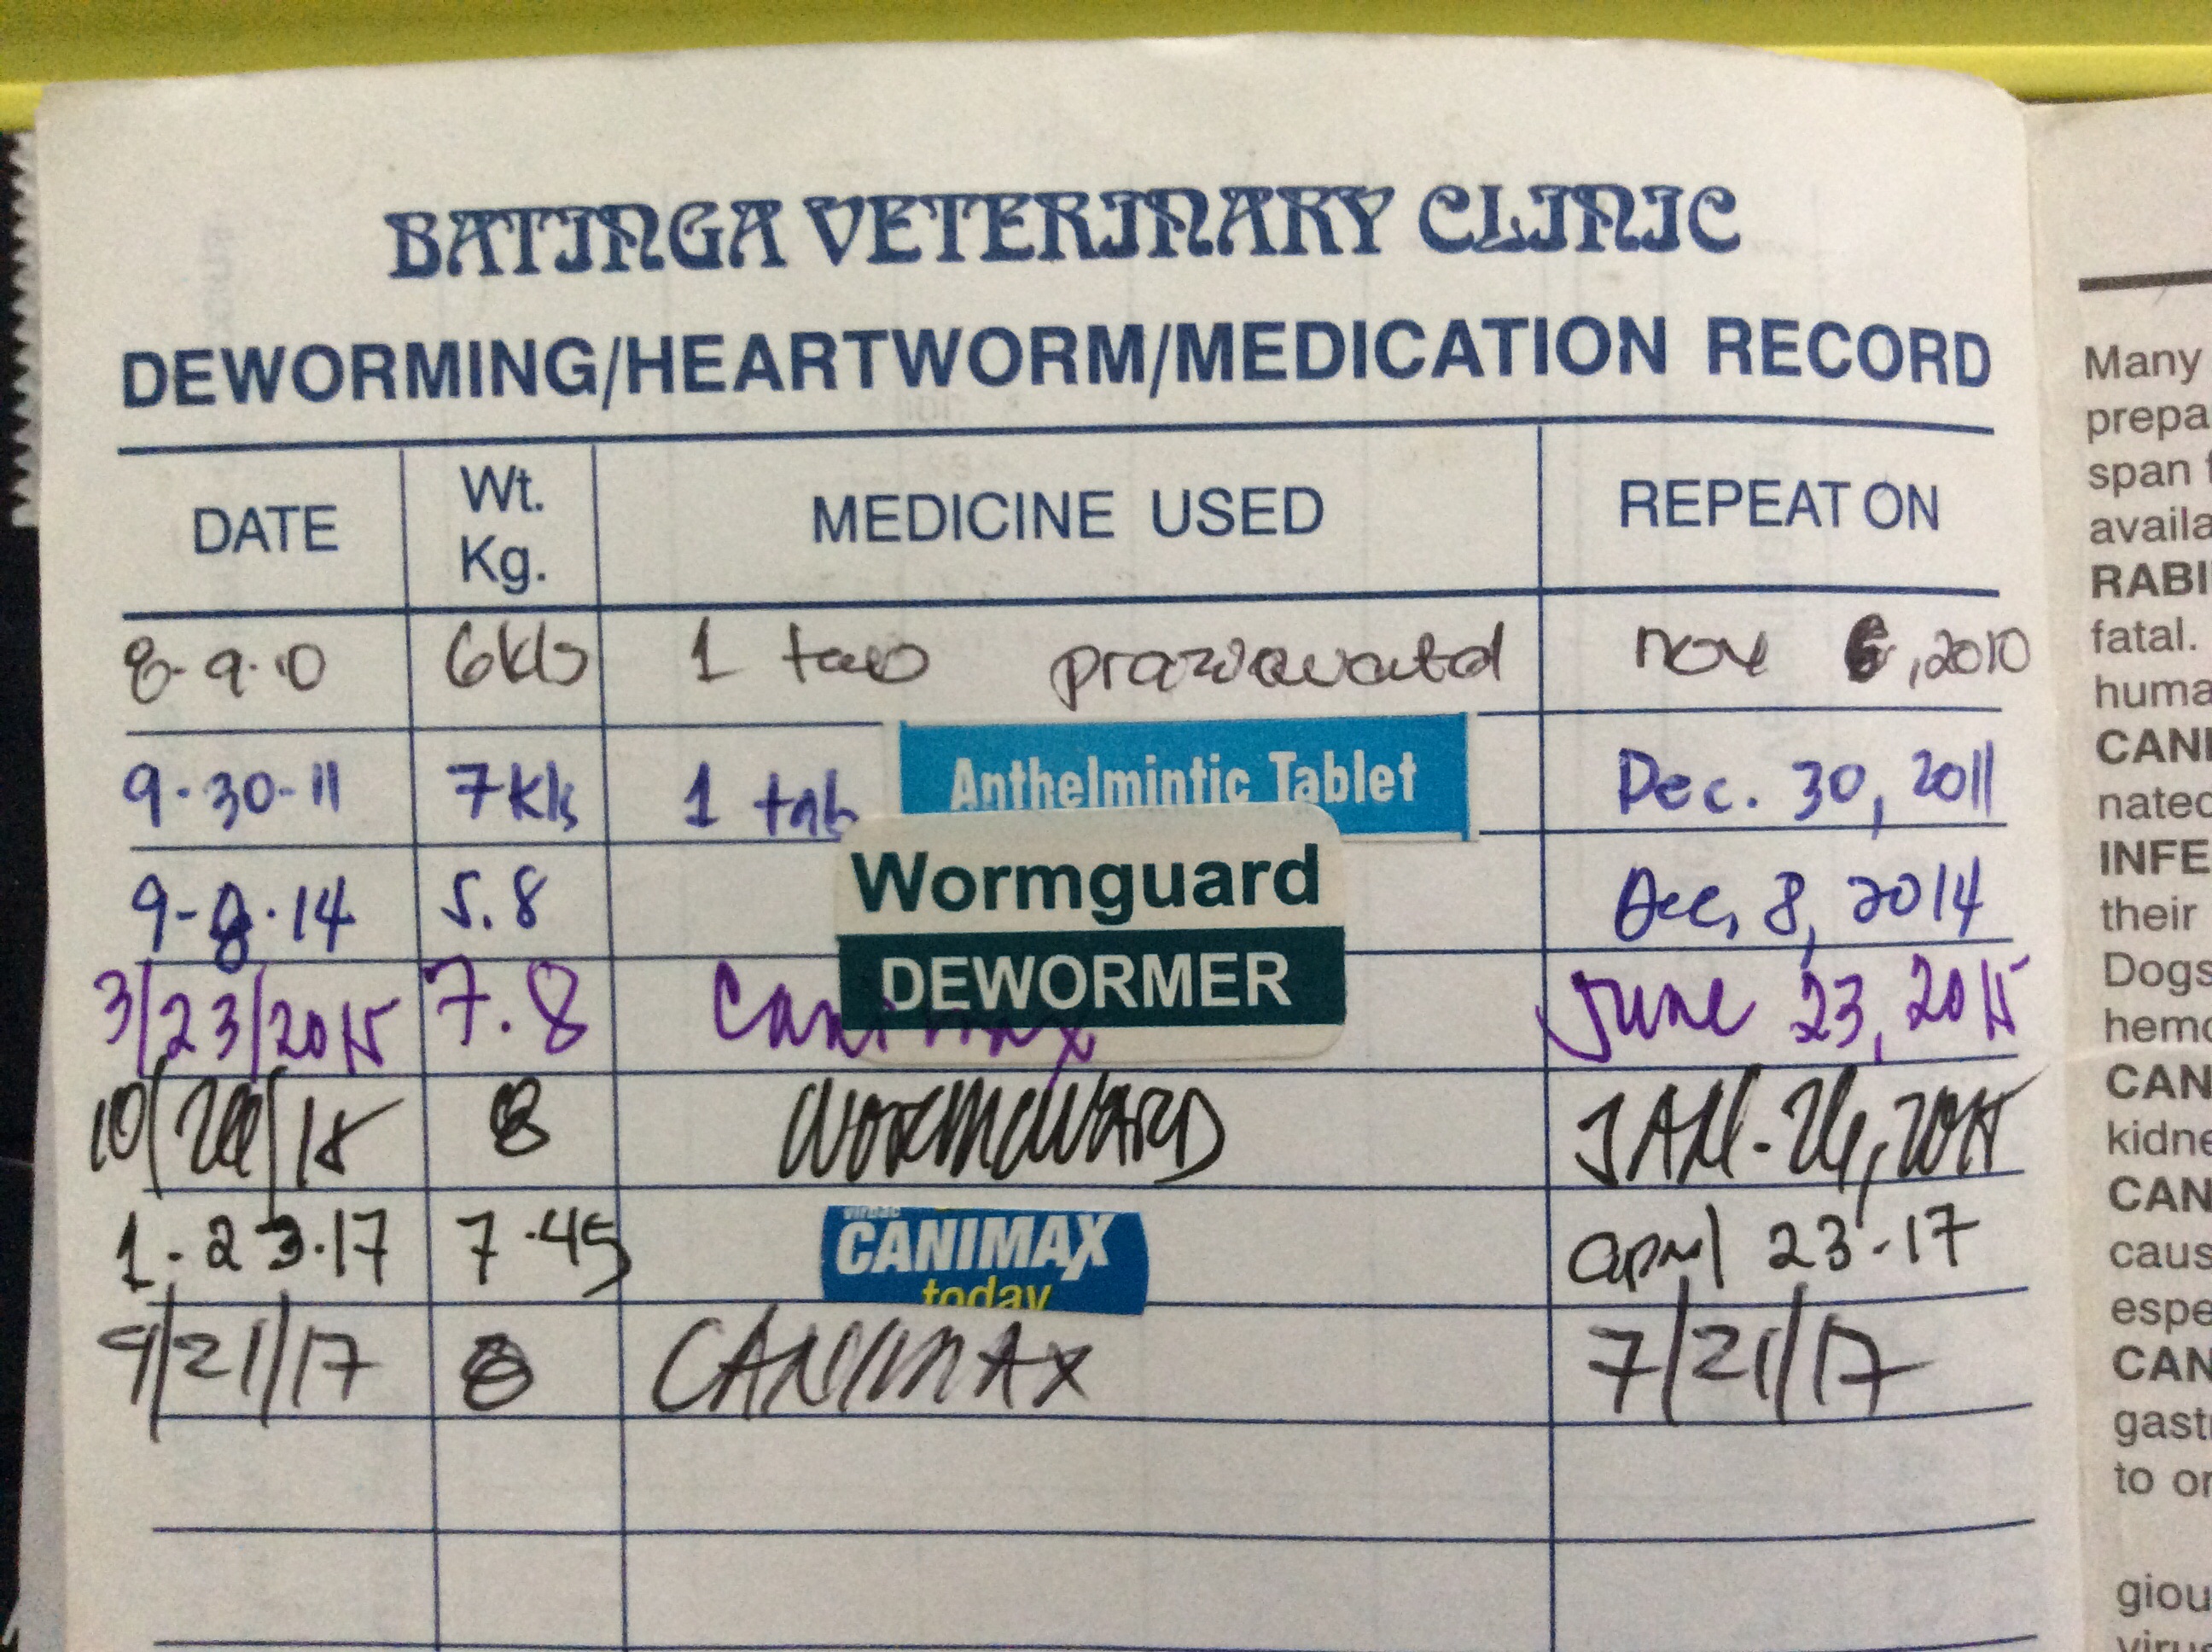 BATINGA VETERINARY CLINIC
DEWORMING/HEARTWORM/MEDICATION RECORD
DATE Wt. Kg. MEDICINE USED REPEAT ON
6kls 1 tab Nov 6, 2010
9-30-11 7kls 1 tab Anthelmintic Tablet Dec. 30, 2011
9-8-14 5.8 Wormguard DEWORMER Dec, 8, 2014
3/23/2015 7.8 Canimax June 23, 2015
8 WORMGUARD
1-23-17 7.45 virbac CANIMAX today april 23-17
21/17 8 CANIMAX 7/21/17
Many
prepa
span
availa
RABI
fatal.
huma
CANI
nated
INFE
their
Dogs
hemo
CAN
kidne
CAN
caus
espe
CAN
gast
to or
giou